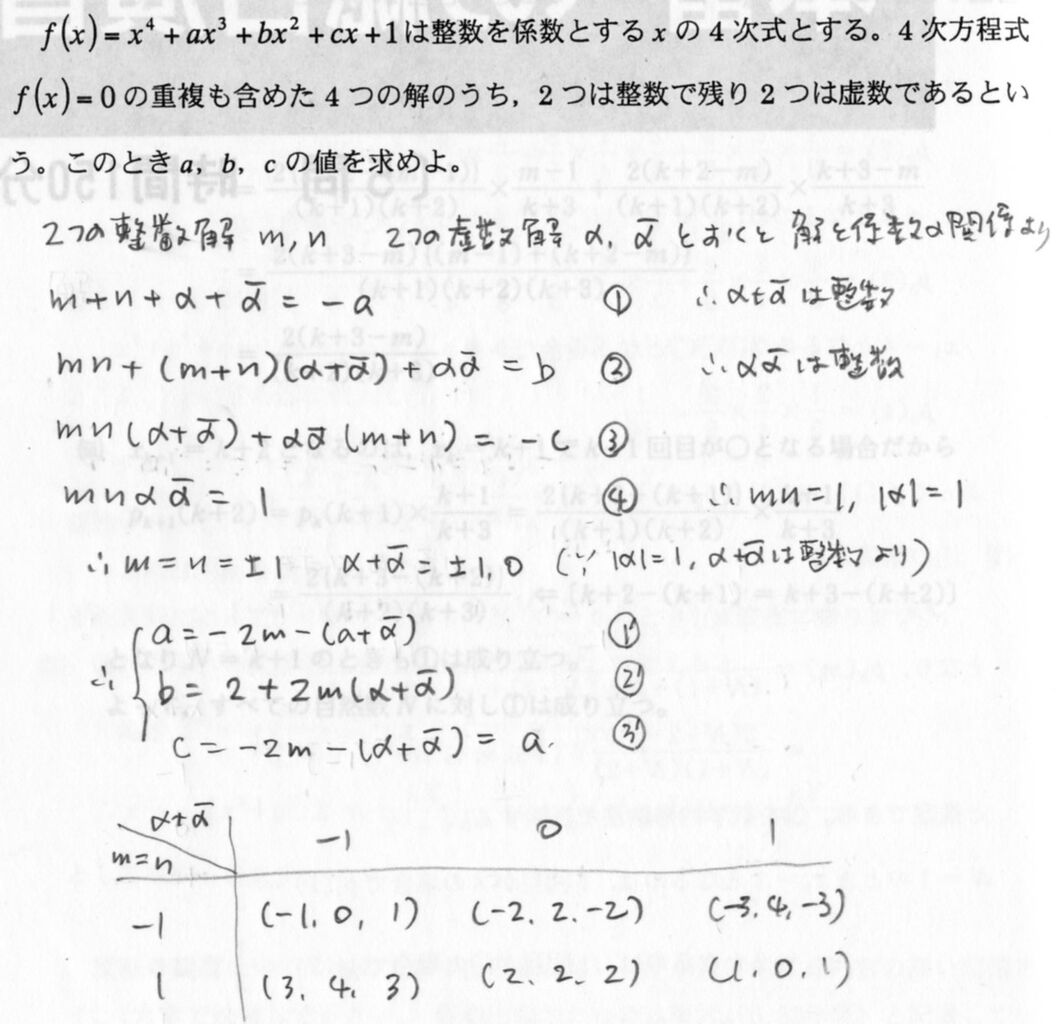 f(x)=x⁴+ax³+bx²+cx+1は整数を係数とするxの4次式とする。4次方程式
f(x)=0の重複も含めた4つの解のうち，2つは整数で残り2つは虚数であるとい
う。このときa，b，cの値を求めよ。
2つの整数解 m,n 2つの虚数解 α, ᾱ とおくと 解と係数の関係より
m+n+α+ᾱ = -a ① ∴α+ᾱは整数
mn+(m+n)(α+ᾱ)+αᾱ = b ② ∴αᾱは整数
mn(α+ᾱ)+αᾱ(m+n) = -c ③
mnαᾱ = 1 ④ ∴mn=1, |α|=1
∴m=n=±1 α+ᾱ=±1,0 (∵|α|=1, α+ᾱは整数より)
a=-2m-(α+ᾱ) ①'
∴ b=2+2m(α+ᾱ) ②'
c=-2m-(α+ᾱ)=a ③'
α+ᾱ -1 0 1
m=n
-1 (-1, 0, 1) (-2, 2, -2) (-3, 4, -3)
1 (3, 4, 3) (2, 2, 2) (1, 0, 1)